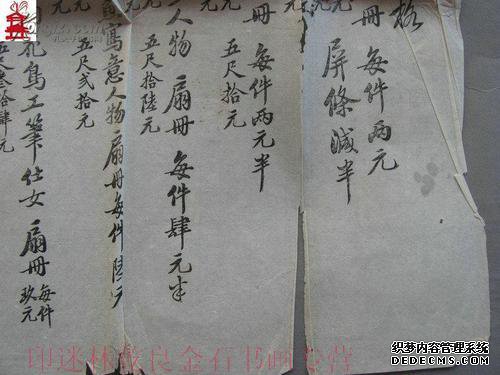 格
冊 每件两元
屏條減半
冊 每件两元半
五尺拾元
人物 扇冊 每件肆元半
五尺拾陸元
寫意人物 扇冊每件陸元
五尺贰拾元
花鳥工筆仕女 扇冊 每件玖元
五尺叁拾肆元
印迷林俊良金石书画专营
织梦内容管理系统
DEDECMS.COM